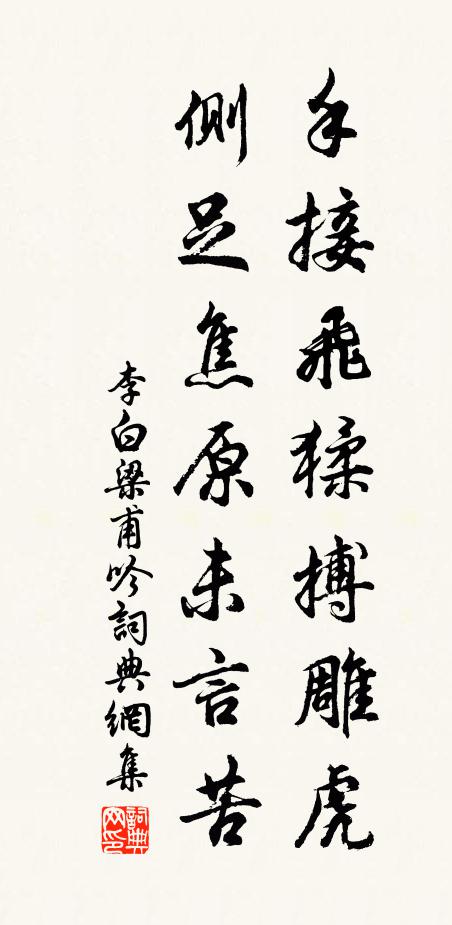 手接飛猱搏雕虎
側足焦原未言苦
李白梁甫吟詞典網集
詞典網印